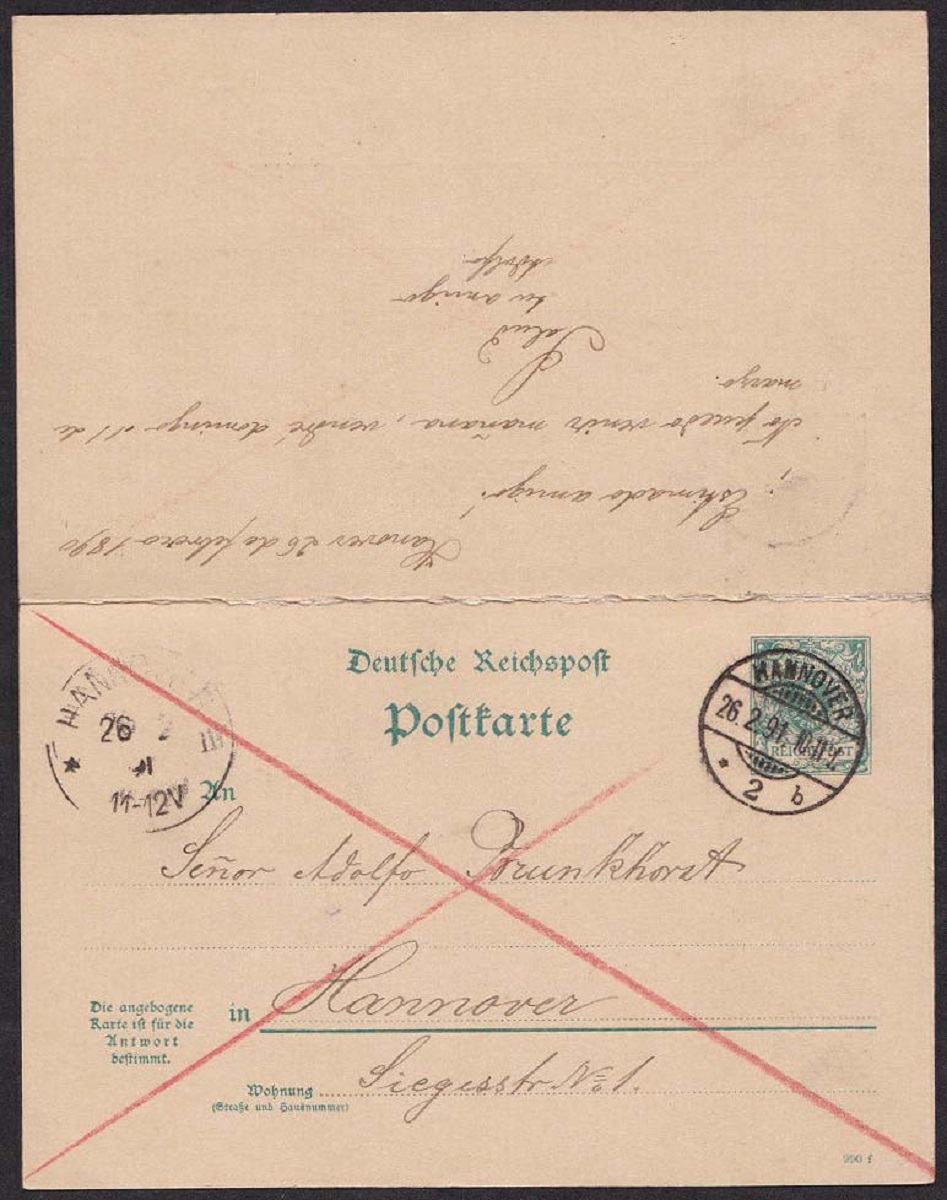 Hanover 26 de febrero 1890
Estimado amigo!
No puedo venir mañana, vendré domingo d. 1 de
marzo.
Salud
tu amigo
Adolfo.
Deutsche Reichspost
Postkarte
HANNOVER
26 2
11-12V
HANNOVER
26.2.91.
2 b
REICHSPOST
An
Señor Adolfo Brunkhorst
in Hannover
Die angebogene
Karte ist für die
Antwort
bestimmt.
Wohnung Siegesstr No 1.
(Straße und Hausnummer)
990 f